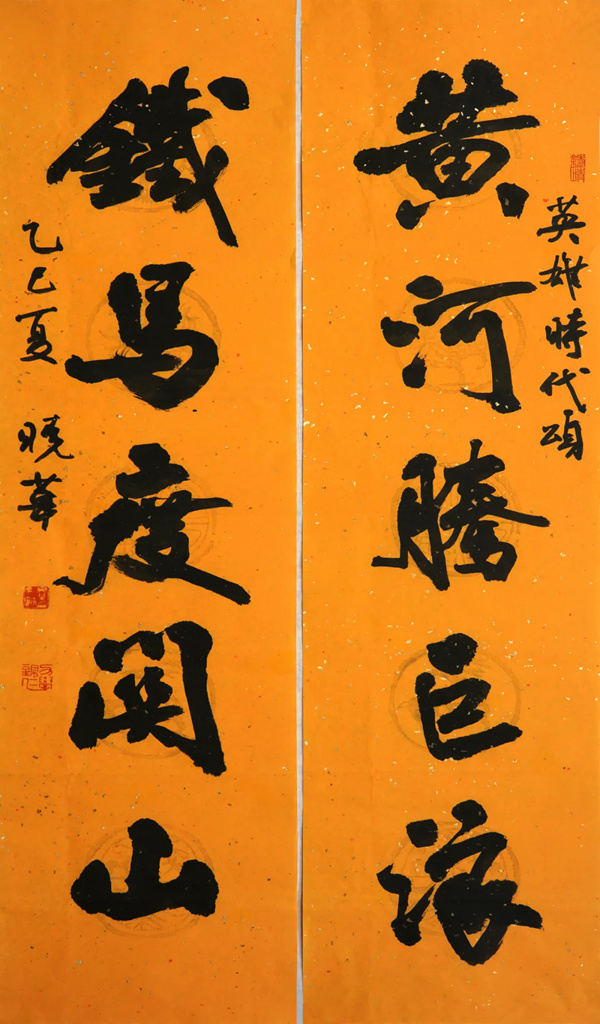 英雄時代頌
黄河騰巨浪
鐵馬度關山
乙巳夏 曉華